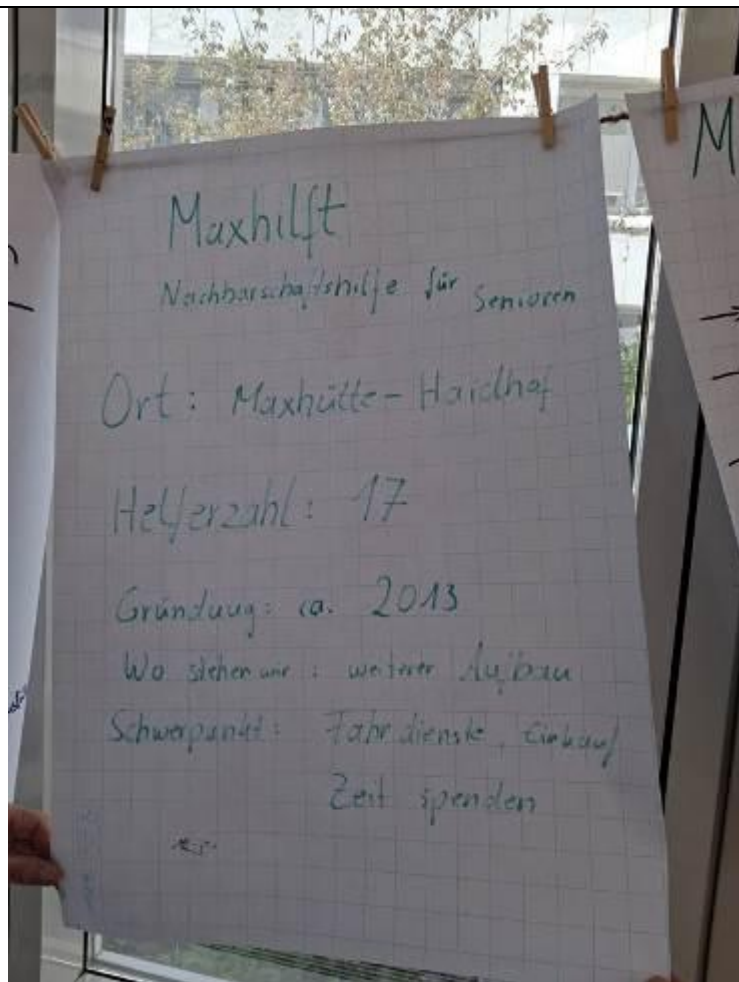 Maxhilft
Nachbarschaftshilfe für Senioren
Ort: Maxhütte-Haidhof
Helferzahl: 17
Gründung: ca. 2013
Wo stehen wir: weiterer Aufbau
Schwerpunkt: Fahrdienste, Einkauf
Zeit spenden
M